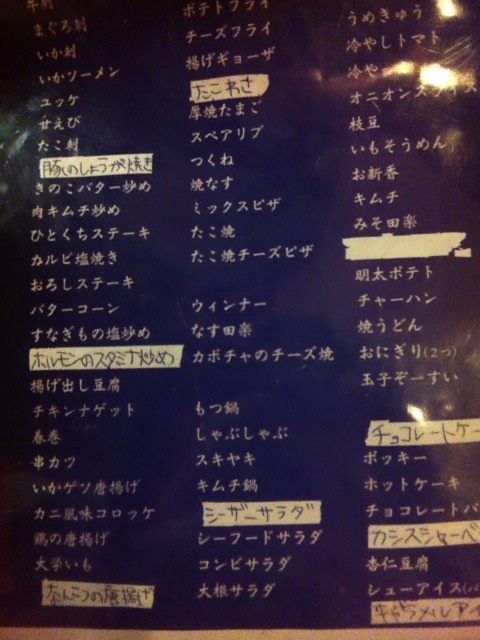 まぐろ刺
いか刺
いかソーメン
ユッケ
甘えび
たこ刺
豚のしょうが焼き
きのこバター炒め
肉キムチ炒め
ひとくちステーキ
カルビ塩焼き
おろしステーキ
バターコーン
すなぎもの塩炒め
ホルモンのスタミナ炒め
揚げ出し豆腐
チキンナゲット
春巻
串カツ
いかゲソ唐揚げ
カニ風味コロッケ
鶏の唐揚げ
大学いも
なんこつの唐揚げ
ポテトフライ
チーズフライ
揚げギョーザ
たこわさ
厚焼たまご
スペアリブ
つくね
焼なす
ミックスピザ
たこ焼
たこ焼チーズピザ
ウィンナー
なす田楽
カボチャのチーズ焼
もつ鍋
しゃぶしゃぶ
スキヤキ
キムチ鍋
シーザーサラダ
シーフードサラダ
コンビサラダ
大根サラダ
うめきゅう
冷やしトマト
冷や
オニオンスライス
枝豆
いもそうめん
お新香
キムチ
みそ田楽
明太ポテト
チャーハン
焼うどん
おにぎり(2つ)
玉子ぞーすい
チョコレートケー
ポッキー
ホットケーキ
チョコレートパ
カシスシャーベ
杏仁豆腐
シューアイス
キャラメルアイ